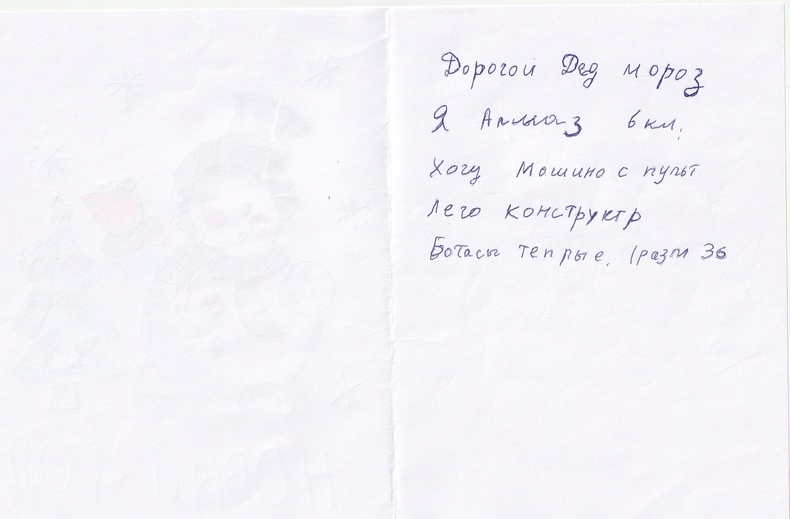 Дорогой Дед мороз
Я Алмаз 6 кл.
Хочу Машино с пульт
Лего конструктр
Ботасы теплые. (разм 36